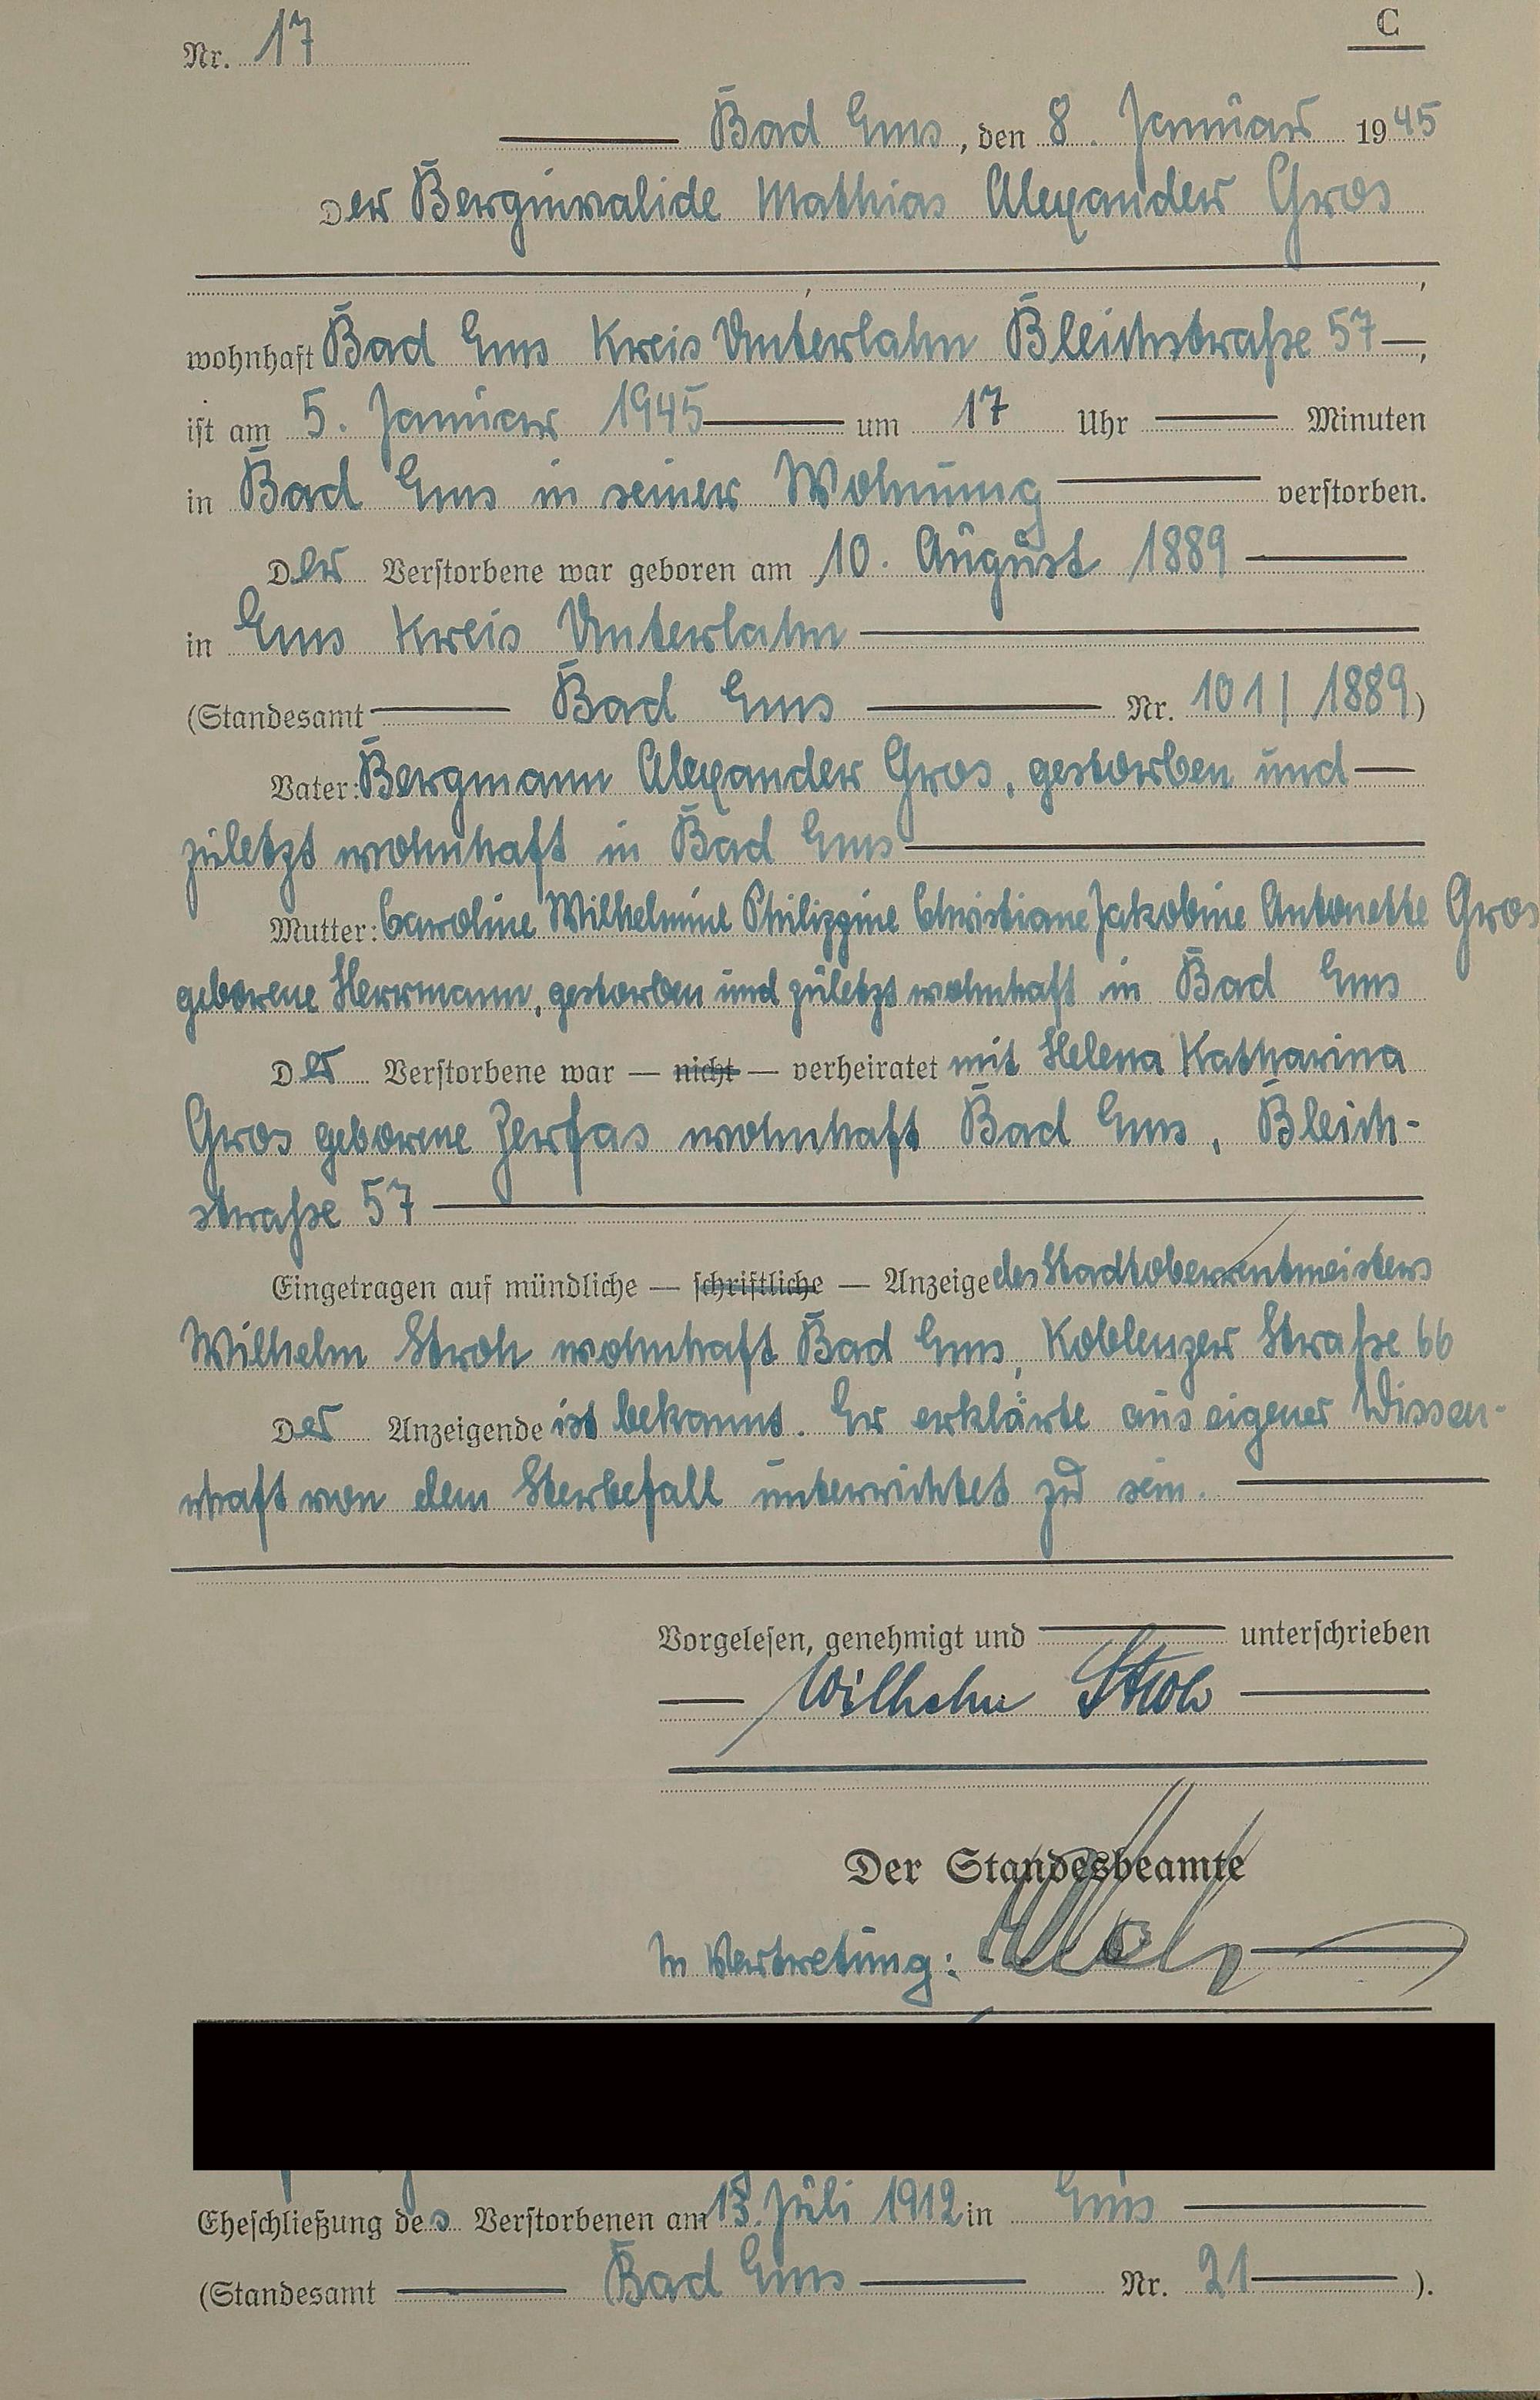 C
Nr. 17
Bad Ems, den 8. Januar 1945
Der Berginvalide Mathias Alexander Gros
wohnhaft Bad Ems Kreis Unterlahn Bleichstraße 57,
ist am 5. Januar 1945 um 17 Uhr Minuten
in Bad Ems in seiner Wohnung verstorben.
Der Verstorbene war geboren am 10. August 1889
in Ems Kreis Unterlahn
(Standesamt Bad Ems Nr. 101/1889)
Vater: Bergmann Alexander Gros, gestorben und
zuletzt wohnhaft in Bad Ems
Mutter: Caroline Wilhelmine Philippine Christiane Jakobine Antonette Gros
geborene Herrmann, gestorben und zuletzt wohnhaft in Bad Ems
Der Verstorbene war — nicht — verheiratet mit Helena Katharina
Gros geborene Zerfas wohnhaft Bad Ems, Bleich-
straße 57
Eingetragen auf mündliche — schriftliche — Anzeige des Stadtoberrentmeisters
Wilhelm Stroh wohnhaft Bad Ems, Koblenzer Straße 66
Der Anzeigende ist bekannt. Er erklärte aus eigener Wissen-
schaft von dem Sterbefall unterrichtet zu sein.
Vorgelesen, genehmigt und unterschrieben
Wilhelm Stroh
Der Standesbeamte
In Vertretung:
Eheschließung des Verstorbenen am 13. Juli 1912 in Ems
(Standesamt Bad Ems Nr. 21).